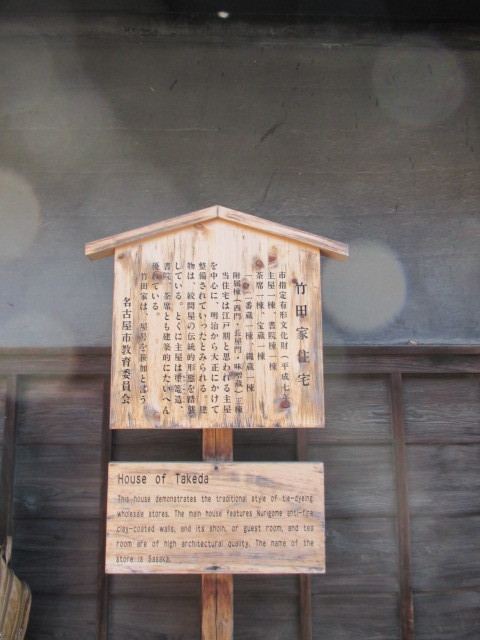 竹田家住宅
市指定有形文化財(平成七年)
主屋一棟 書院棟一棟
茶席一棟、宝蔵一棟
一・二番蔵一棟・藍蔵一棟
附属棟(西門・長屋門・味噌蔵)三棟
当住宅は江戸期と思われる主屋
を中心に、明治から大正にかけて
整備されていったとみられる。建
物は、絞問屋の伝統的形態を踏襲
している。とくに主屋は塗籠造、
書院、茶席とも建築的にたいへん
優れている。
竹田家は、屋号を笹加と言う
名古屋市教育委員会
House of Takeda
This house demonstrates the traditional style of tie-dyeing
wholesale stores. The main house features Nurigome anti-fire
clay-coated walls, and its shoin, or guest room, and tea
room are of high architectural quality. The name of the
store is Sasaka.